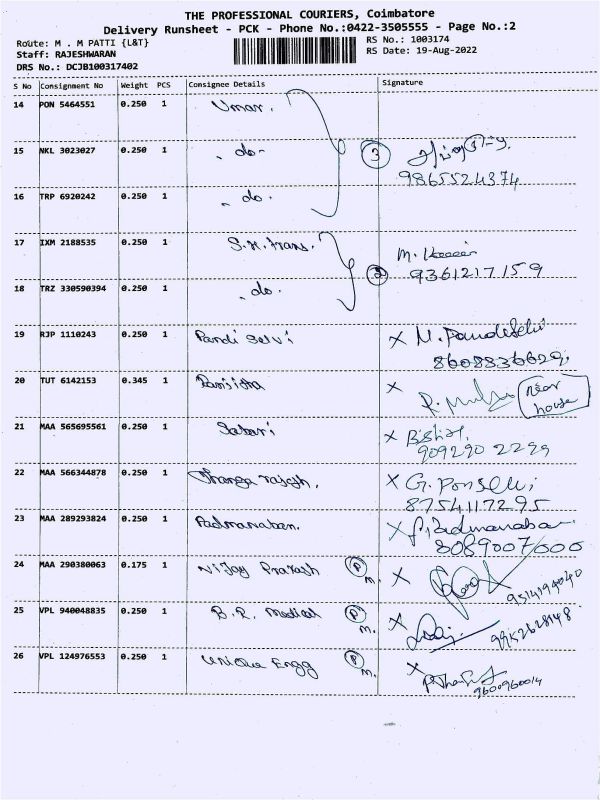 THE PROFESSIONAL COURIERS, Coimbatore
Delivery Runsheet - PCK - Phone No.:0422-3505555 - Page No.:2
Route: M . M PATTI {L&T}
RS No.: 1003174
Staff: RAJESHWARAN
RS Date: 19-Aug-2022
DRS No.: DCJB100317402
S No Consignment No Weight PCS Consignee Details Signature
14 PON 5464551 0.250 1 Umar.
15 NKL 3023027 0.250 1 - do - 3
9865524374
16 TRP 6920242 0.250 1 - do.
17 IXM 2188535 0.250 1 S.H. trans. M.
2 9361217159
18 TRZ 330590394 0.250 1 - do.
19 RJP 1110243 0.250 1 Pandi selvi X M. Pandiselvi
8608836629.
20 TUT 6142153 0.345 1 X R. near
house
21 MAA 565695561 0.250 1 Sabari X
909290 2299
22 MAA 566344878 0.250 1 Thanga rajesh. X G. Ponselvi
8754117295
23 MAA 289293824 0.250 1 Padmanaban. X P. Padmanaban
8089007000
24 MAA 290380063 0.175 1 Vijay Prakash P m. X
9514199040
25 VPL 940048835 0.250 1 B.R. Medical P m. X
9952628148
26 VPL 124976553 0.250 1 Unique Engg P m. X
9600960014